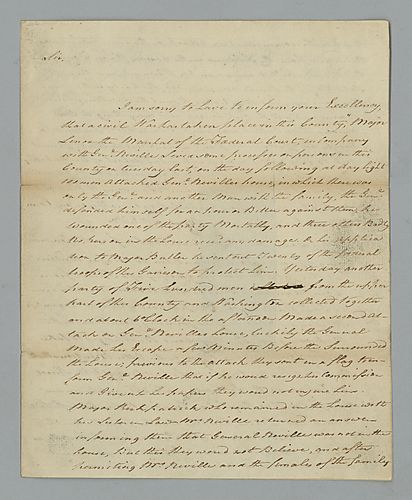 Sir,
I am sorry to have to inform your Excellency,
that a civil War has taken place in this County, Major
Lenox the Marshal of the Federal Court, in Company
with Genl. Neville Served some processes on persons in this
County on tuesday last, on the day following at day light
100 men Attacked Genl. Neville's house, in which there was
only the Genl. and another Man with the family, the Genl.
defended himself for an hour & Better against them, he
wounded one of the party Mortally, and three others Badly
No person in the house recd. any damage, by his applica
tion to Major Butler he sent out Twenty of the Federal
troops of this Garrison to protect him. Yesterday another
party of Five Hundred men from the upper
part of this County and Washington collected together
and about 6 Clock in the afternoon Made a second At-
tack on Genl. Neville's house, luckily the General
Made his Escape a few Minutes Before they Surrounded
the house; previous to the attack they sent in a flag to in-
form Genl. Neville that if he would resign his Commission
and give up his papers they would not injure him
Major Kirkpatrick who remained in the house with
his Sister in Law Mrs. Neville returned an answer
informing them that General Neville was not in the
house, But this they would not Believe, and after
permitting Mrs. Neville and the females of the family